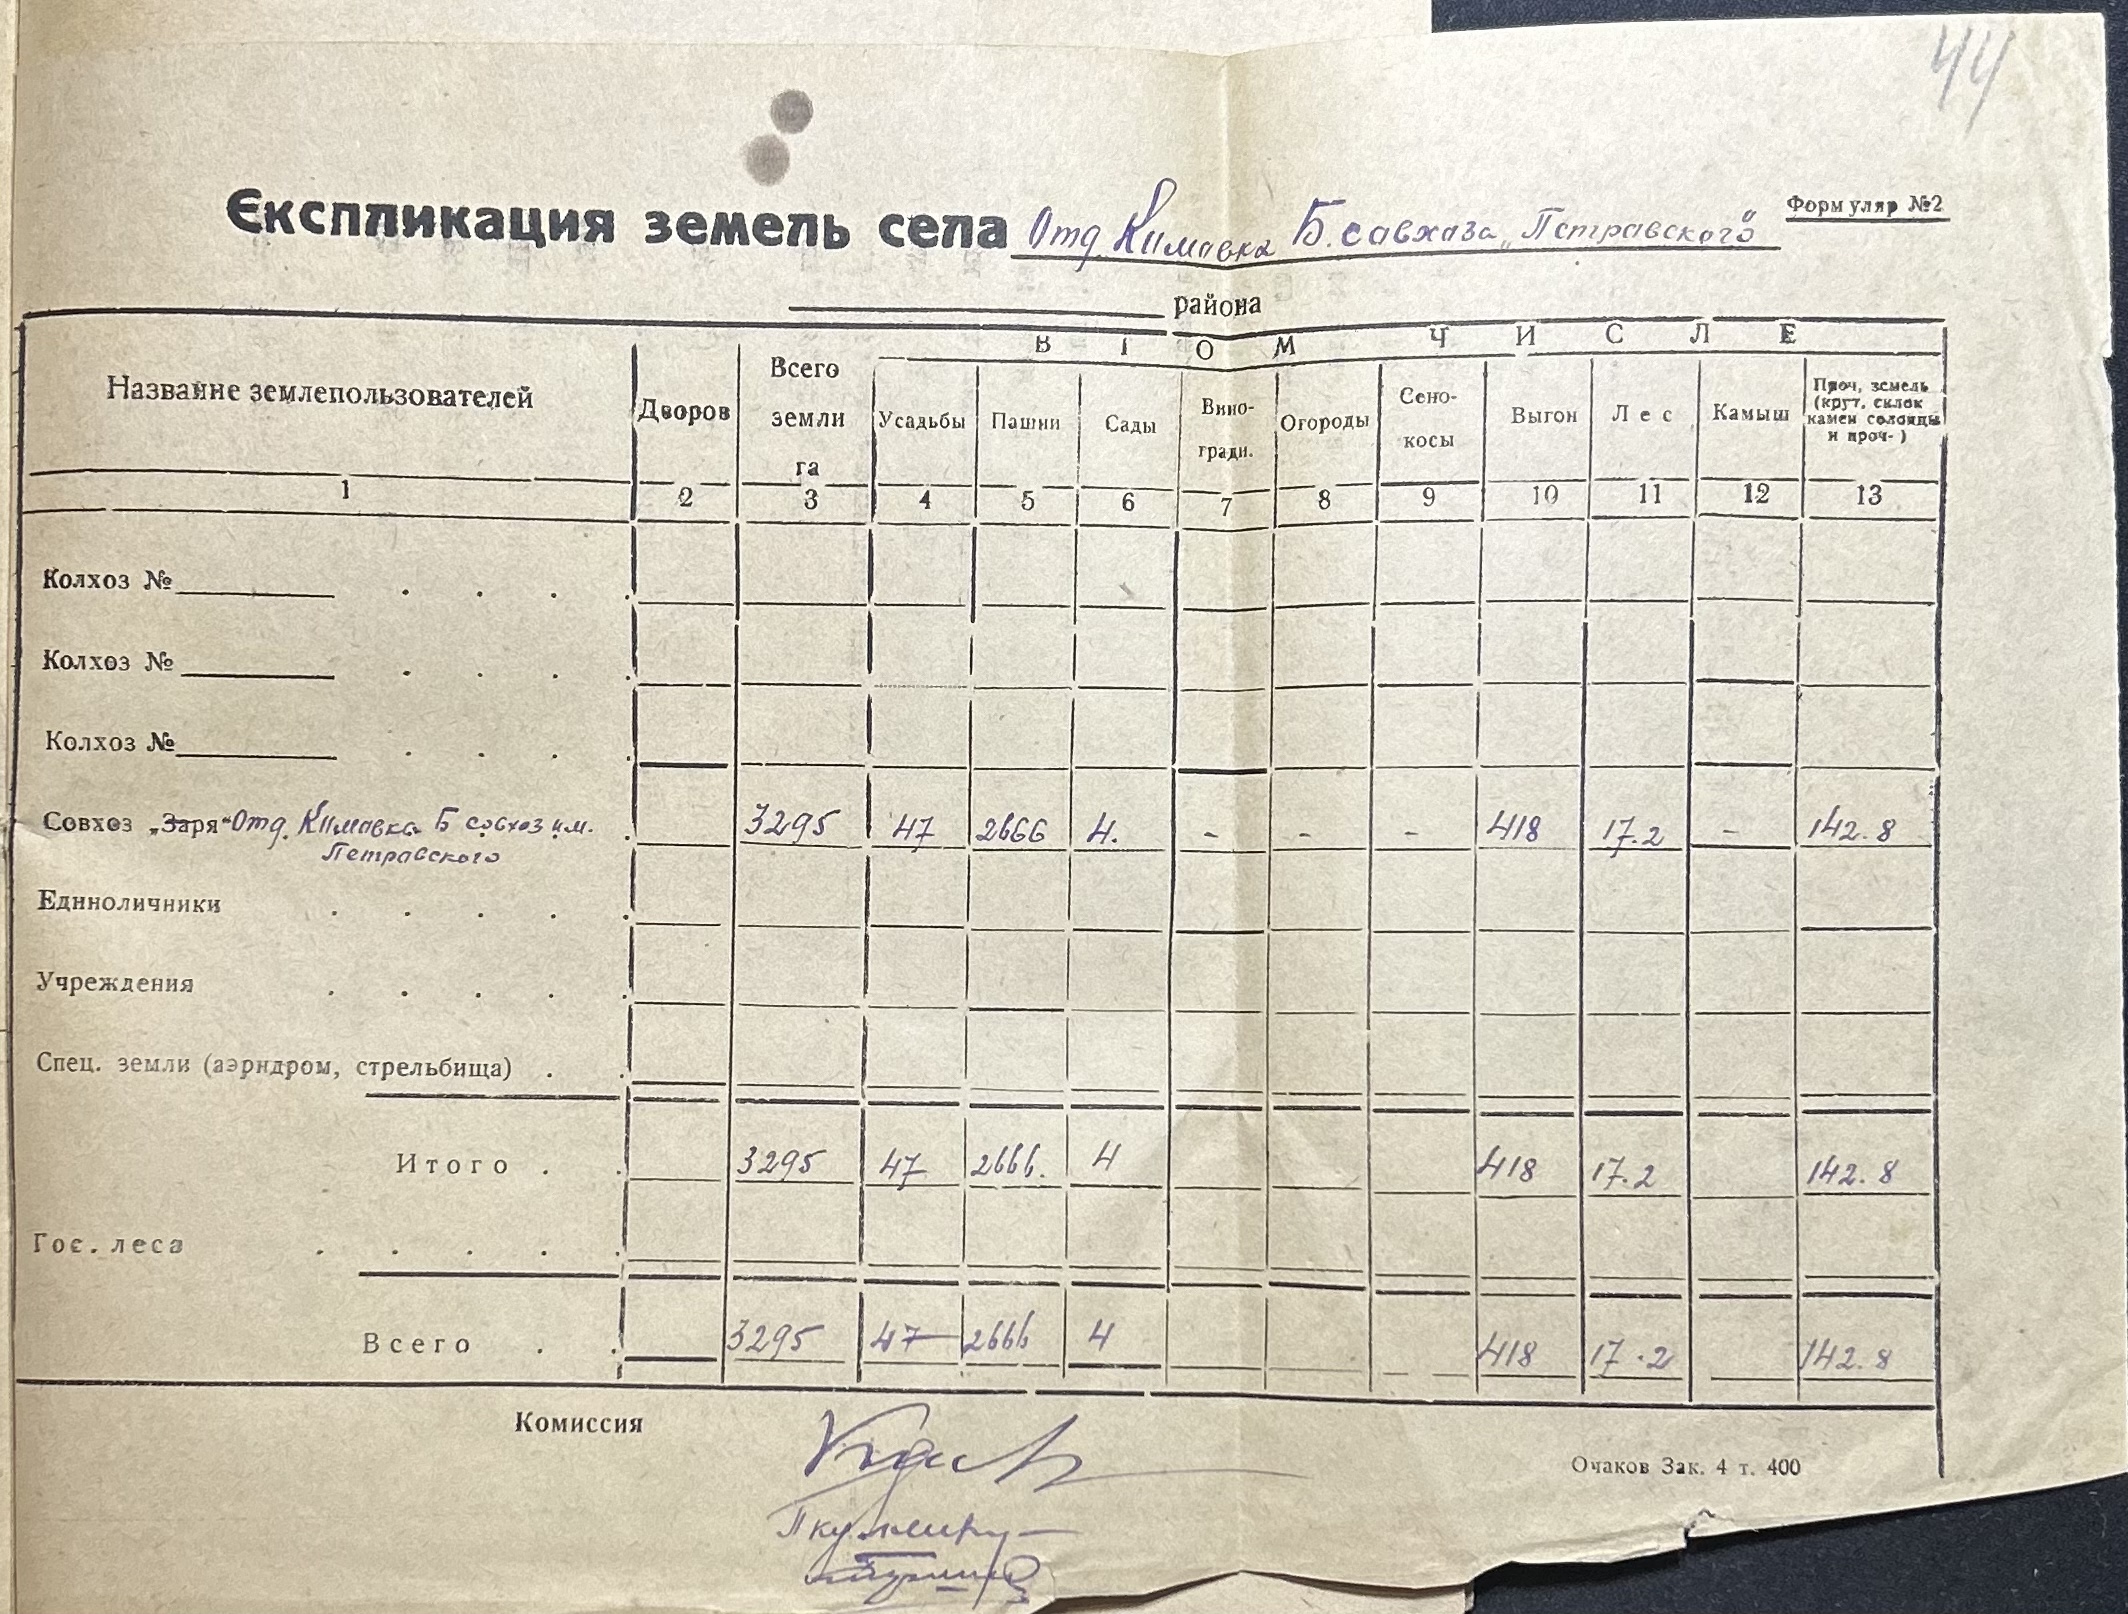 44
Формуляр №2
Експликация земель села Отд. Кимовка Б. совхоза „Петравского"
района
В ТОМ ЧИСЛЕ
Название землепользователей Дворов Всего земли га Усадьбы Пашни Сады Вино-гради. Огороды Сено-косы Выгон Лес Камыш Проч, земель (крут. склок камен солонцы и проч-)
1 2 3 4 5 6 7 8 9 10 11 12 13
Колхоз №
Колхоз №
Колхоз №
Совхоз „Заря" Отд. Кимовка Б совхоз им. 3295 47 2666 4. - - - 418 17.2 - 142.8
Петравского
Единоличники
Учреждения
Спец. земли (аэрндром, стрельбища)
Итого 3295 47 2666. 4 418 17.2 142.8
Гос. леса
Всего 3295 47 2666 4 418 17.2 142.8
Комиссия
Очаков Зак. 4 т. 400